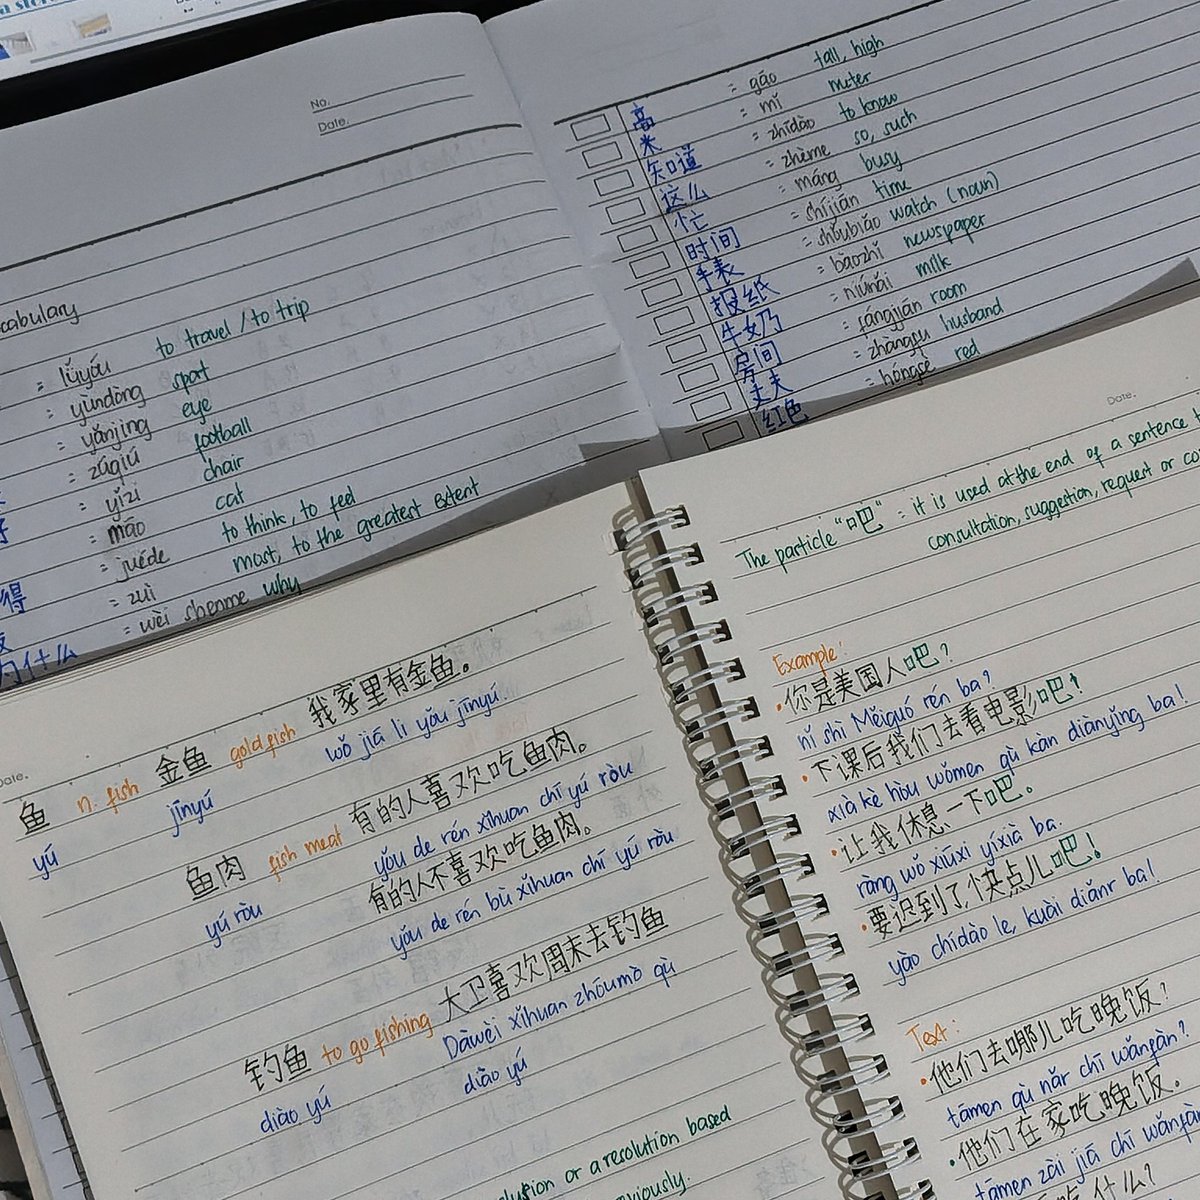 No.
Date.
: lǚyóu to travel / to trip
: yùndòng sport
: yǎnjing eye
: zúqiú football
: yǐzi chair
: māo cat
得 : juéde to think, to feel
: zuì most, to the greatest extent
为什么 : wèi shenme why
高 : gāo tall, high
米 : mǐ meter
知道 : zhīdào to know
这么 : zhème so, such
忙 : máng busy
时间 : shíjiān time
手表 : shǒubiǎo watch (noun)
报纸 : bàozhǐ newspaper
牛奶 : niúnǎi milk
房间 : fángjiān room
丈夫 : zhàngfu husband
红色 : hóngsè red
Date.
鱼 n. fish 金鱼 goldfish 我家里有金鱼。
yú jīnyú wǒ jiā li yǒu jīnyú.
鱼肉 fish meat 有的人喜欢吃鱼肉。
yú ròu yǒu de rén xǐhuan chī yú ròu
有的人不喜欢吃鱼肉。
yǒu de rén bù xǐhuan chī yú ròu
钓鱼 to go fishing 大卫喜欢周末去钓鱼
diào yú Dàwèi xǐhuan zhōumò qù
diào yú
or a resolution based
Date.
The particle "吧" : it is used at the end of a sentence
consultation, suggestion, request or
Example:
• 你是美国人吧?
nǐ shì Měiguó rén ba?
• 下课后我们去看电影吧!
xià kè hòu wǒmen qù kàn diànyǐng ba!
• 让我休息一下吧。
ràng wǒ xiūxi yíxià ba.
• 要迟到了,快点儿吧!
yào chídào le, kuài diǎnr ba!
Text:
• 他们去哪儿吃晚饭?
tāmen qù nǎr chī wǎnfàn?
• 他们在家吃晚饭。
tāmen zài jiā chī wǎnfàn
什么?